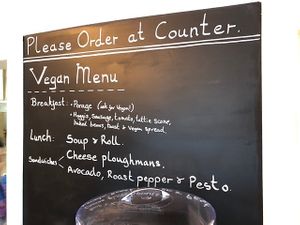 Please Order at Counter.
Vegan Menu
Breakfast: • Porage (ask for Vegan!)
• Haggis, Sausage, tomato, tattie scone,
baked beans, toast & Vegan spread.
Lunch: Soup & Roll.
Sandwiches Cheese ploughmans,
Avocado, Roast pepper & Pesto.